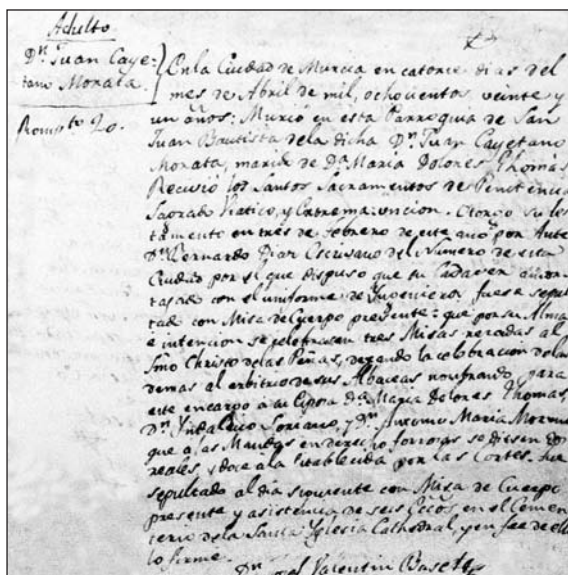 Adulto.
Dn. Juan Caye-
tano Morata.
Rompto. 20.
En la Ciudad de Murcia en catorce dias del
mes de Abril de mil, ochocientos, veinte y
un años: Murió en esta Parroquia de San
Juan Bautista dela dicha Dn. Juan Cayetano
Morata, marido de Da. Maria Dolores Thomas,
Recivió los Santos Sacramentos de Penitencia
Sagrado Viatico, y Extrema-uncion. Otorgó su tes
tamento en tres de febrero de este año por Ante
Dn. Bernardo Diaz Escrivano del Numero de esta
Ciudad por el que dispuso que su Cadaver amor
tajado con el uniforme de Ingeniero, fuese sepul
tado con Misa de Cuerpo presente: que por su Alma
e intencion se zelebrasen tres Misas rezadas al
Smo Christo de las Peñas, dexando la celebracion de las
demas al arbitrio de sus Albaceas nonbrando para
este encargo á su Esposa Da. Maria Dolores Thomas,
Dn. Yndalecio Soriano, y Dn. Antonio Maria
que a las Mandas en derecho forzosas se diesen dos
reales, y doce á la establecida por las Cortes. fue
sepultado al dia siguiente con Misa de Cuerpo
presente y asistencia de seis en el Cemen
terio de la Santa Yglesia Cathedral, y en fee de ello
lo firmé.
Dn. Valentin